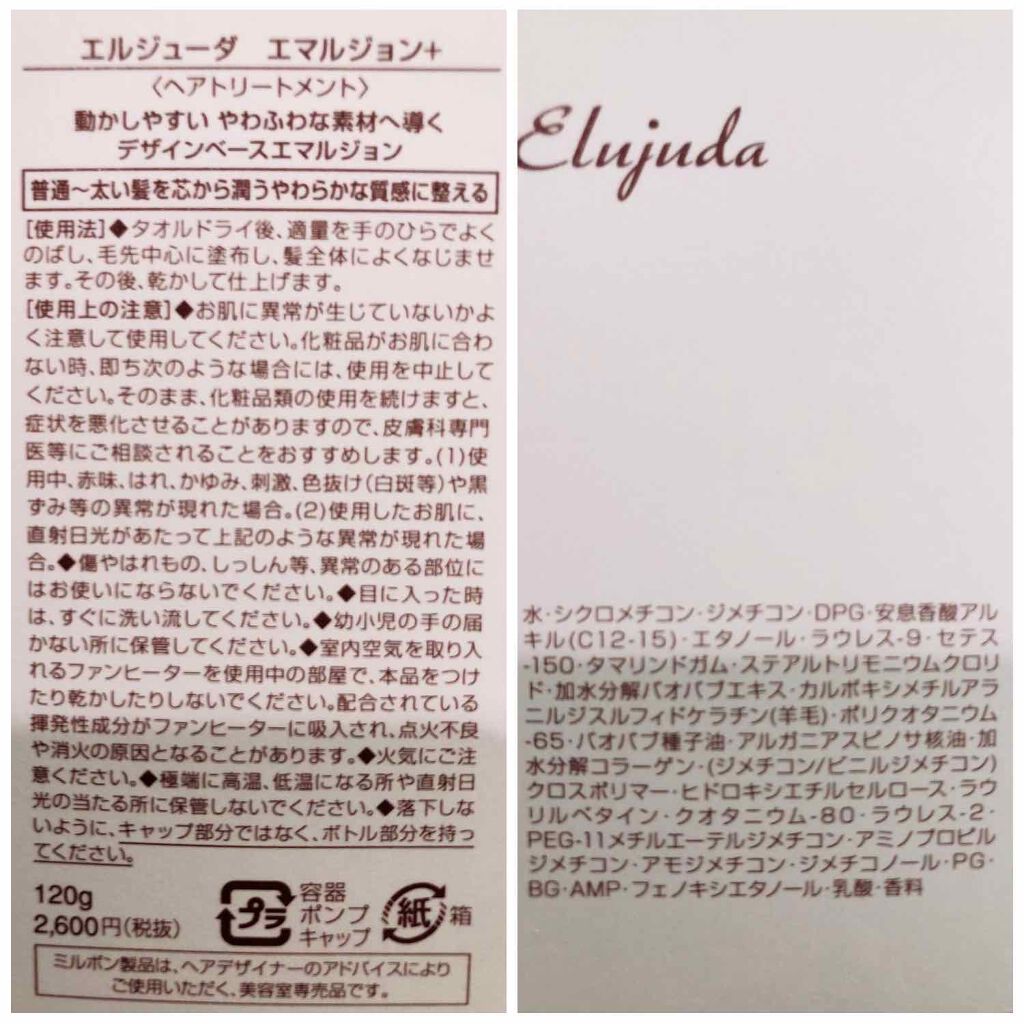 エルジューダ エマルジョン+
〈ヘアトリートメント〉
動かしやすい やわふわな素材へ導く
デザインベースエマルジョン
普通〜太い髪を芯から潤うやわらかな質感に整える
[使用法]◆タオルドライ後、適量を手のひらでよく
のばし、毛先中心に塗布し、髪全体によくなじませ
ます。その後、乾かして仕上げます。
[使用上の注意]◆お肌に異常が生じていないかよ
く注意して使用してください。化粧品がお肌に合わ
ない時、即ち次のような場合には、使用を中止して
ください。そのまま、化粧品類の使用を続けますと、
症状を悪化させることがありますので、皮膚科専門
医等にご相談されることをおすすめします。(1)使
用中、赤味、はれ、かゆみ、刺激、色抜け(白斑等)や黒
ずみ等の異常が現れた場合。(2)使用したお肌に、
直射日光があたって上記のような異常が現れた場
合。◆傷やはれもの、しっしん等、異常のある部位に
はお使いにならないでください。◆目に入った時
は、すぐに洗い流してください。◆幼小児の手の届
かない所に保管してください。◆室内空気を取り入
れるファンヒーターを使用中の部屋で、本品をつけ
たり乾かしたりしないでください。配合されている
揮発性成分がファンヒーターに吸入され、点火不良
や消火の原因となることがあります。◆火気にご注
意ください。◆極端に高温、低温になる所や直射日
光の当たる所に保管しないでください。◆落下しな
いように、キャップ部分ではなく、ボトル部分を持っ
てください。
120g
2,600円(税抜)
プラ
容器
ポンプ
キャップ
紙
箱
ミルボン製品は、ヘアデザイナーのアドバイスにより
ご使用いただく、美容室専売品です。
Elujuda
水・シクロメチコン・ジメチコン・DPG・安息香酸アル
キル(C12-15)・エタノール・ラウレス-9・セテス
-150・タマリンドガム・ステアルトリモニウムクロリ
ド・加水分解バオバブエキス・カルボキシメチルアラ
ニルジスルフィドケラチン(羊毛)・ポリクオタニウム
-65・バオバブ種子油・アルガニアスピノサ核油・加
水分解コラーゲン・(ジメチコン/ビニルジメチコン)
クロスポリマー・ヒドロキシエチルセルロース・ラウ
リルベタイン・クオタニウム-80・ラウレス-2・
PEG-11メチルエーテルジメチコン・アミノプロピル
ジメチコン・アモジメチコン・ジメチコノール・PG・
BG・AMP・フェノキシエタノール・乳酸・香料